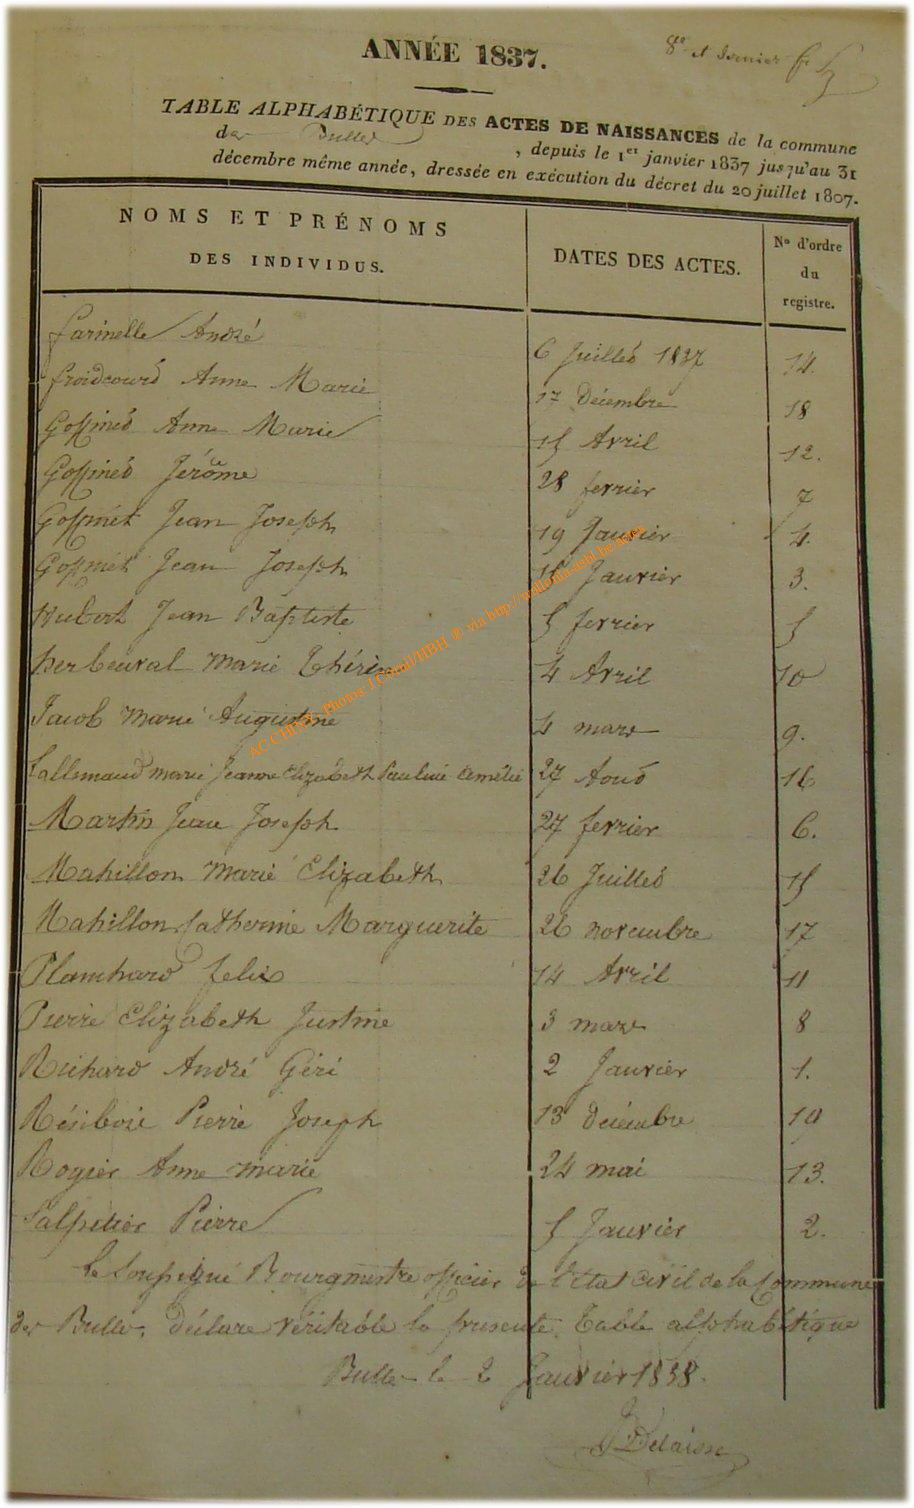 8e et dernier f
ANNÉE 1837.
TABLE ALPHABÉTIQUE DES ACTES DE NAISSANCES de la commune
de Bulles , depuis le 1er janvier 1837 jusqu'au 31
décembre même année, dressée en exécution du décret du 20 juillet 1807.
NOMS ET PRÉNOMS
DES INDIVIDUS.
DATES DES ACTES.
No d'ordre
du
registre.
farinelle André 6 Juillet 1837 14.
froidcourt Anne Marie 17 Décembre 18
Goffinet Anne Marie 15 Avril 12.
Goffinet Jérôme 28 fevrier 7
Goffinet Jean Joseph 19 Janvier 4.
Goffinet Jean Joseph 15 Janvier 3.
Hubert Jean Baptiste 5 fevrier 5
herbeuval marie Thérèse 4 Avril 10
Jacob Marie Augustine 4 mars 9.
Lallemand marie Jeanne Elizabeth Pauline Amélie 27 Aout 16
Martin Jean Joseph 27 fevrier 6.
Mahillon Marie Elizabeth 26 Juillet 15
Mahillon Catherine Marguerite 26 novembre 17
Planchard felix 14 Avril 11
Pierre Elizabeth Justine 3 mars 8
Richard André Géri 2 Janvier 1.
Résibois Pierre Joseph 13 décembre 19
Rogier Anne marie 24 mai 13.
Salpetier Pierre 5 Janvier 2.
Le Soussigné Bourgmestre officier de l'état civil de la Commune
de Bulles, déclare véritable la présente Table alphabétique
Bulles le 2 Janvier 1838.
Delaisse
AC CHINY, Photos JCorail/HBH @ via http://